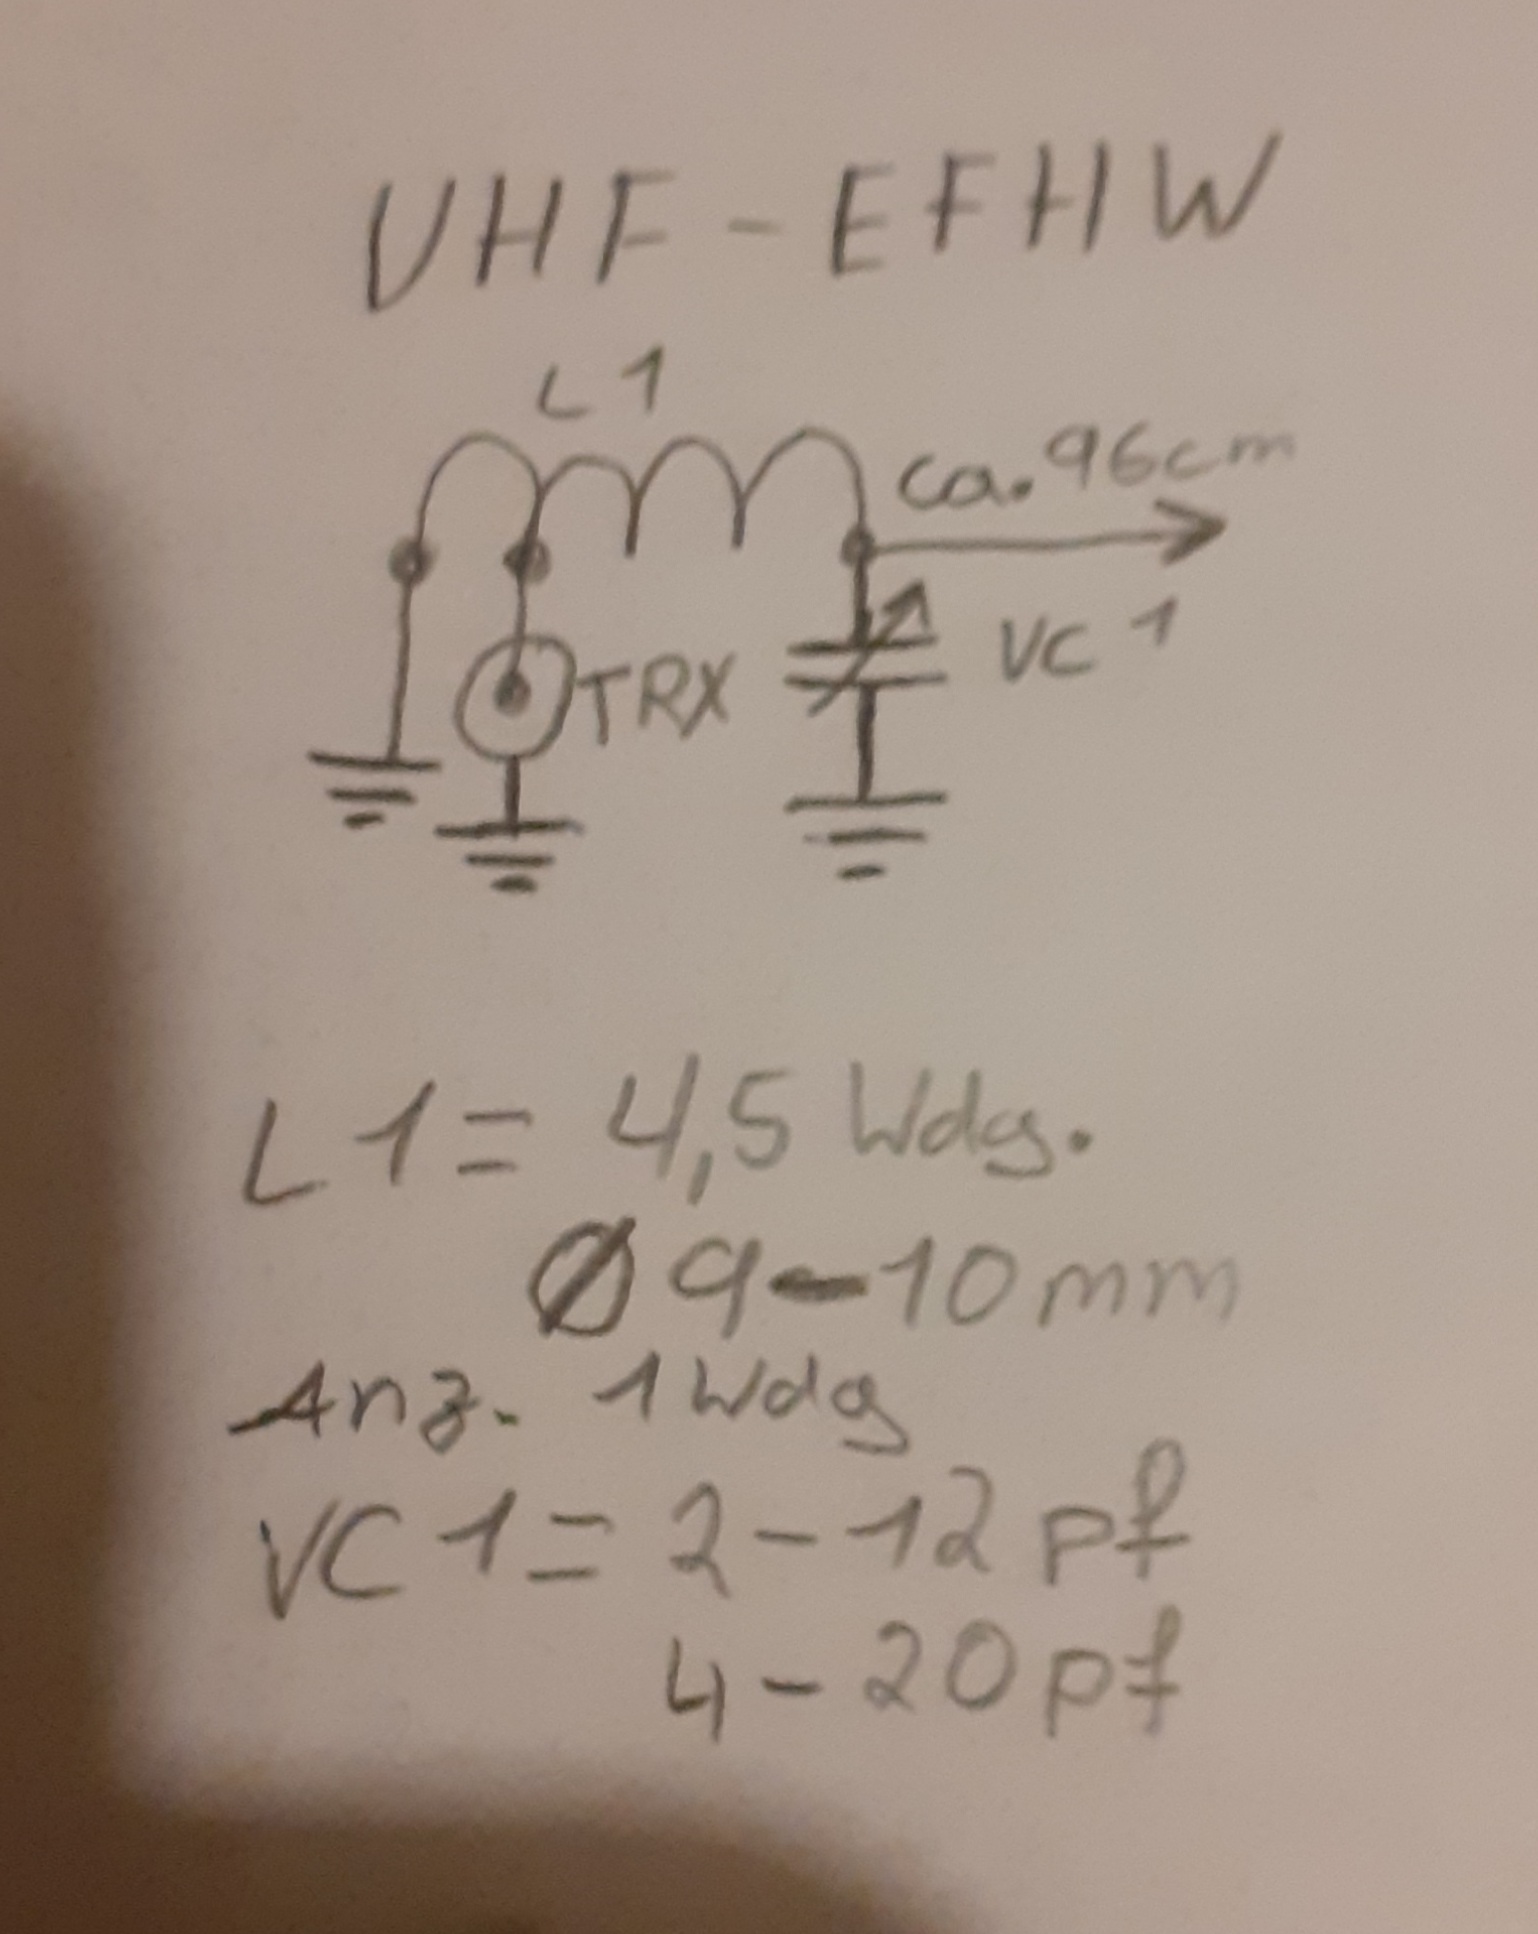 VHF-EFHW
L1
ca. 96cm
TRX
VC1
L1= 4,5 Wdg.
Ø 9-10mm
Anz. 1Wdg
VC1= 2-12pf
4-20pf